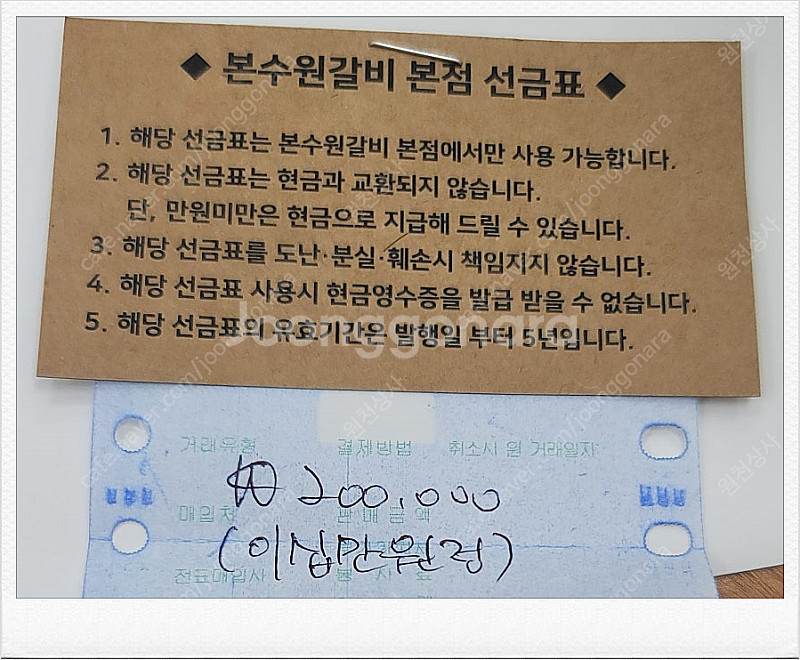 ◆ 본수원갈비 본점 선금표 ◆
1. 해당 선금표는 본수원갈비 본점에서만 사용 가능합니다.
2. 해당 선금표는 현금과 교환되지 않습니다.
단, 만원미만은 현금으로 지급해 드릴 수 있습니다.
3. 해당 선금표를 도난·분실·훼손시 책임지지 않습니다.
4. 해당 선금표 사용시 현금영수증을 발급 받을 수 없습니다.
5. 해당 선금표의 유효기간은 발행일 부터 5년입니다.
Joonggonara
거래유형 결제방법 취소시 원 거래일자
₩ 200,000
매입처 판매금액
(이십만원정)
전표매입사 봉사료
원천상사
cafe.naver.com/joonggonara